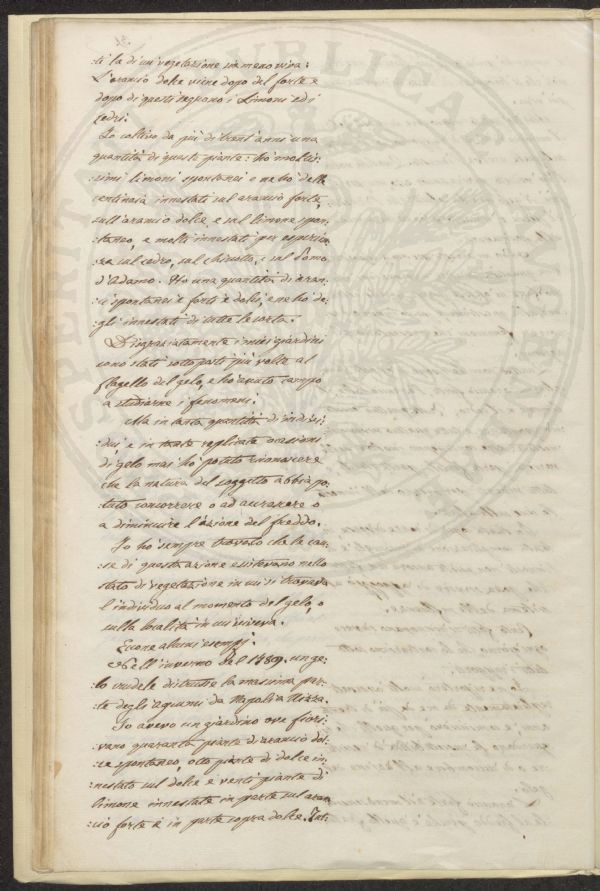 :ti la di un vegetazione via meno viva:
L'arancio dolce viene dopo del forte e
dopo di questi vengano i Limoni ed i
cedri.
Io coltivo da più di trent'anni una
quantità di queste piante: ho moltis:
:simi limoni spontanei e ne ho delle
centinaia innestati sul arancio forte,
sull'arancio dolce, e sul limone spon:
:taneo, e molti innestati per esperien
:za sul cedro, sul chinotto, e sul Pomo
d'Adamo. Ho una quantità di aran:
:ci spontanei e forti e dolci, e ne ho de:
:gli innestati di tutte le sorta.
Disgraziatamente i miei giardini
sono stati sottoposti più volte al
flagello del gelo, e ho avuto campo
a studiarne i fenomeni.
Ma in tanta quantità di indivi:
:dui, e in tante replicate occasioni
di gelo mai ho potuto riconoscere
che la natura del soggetto abbia po:
:tuto concorrere o ad accrescere o
a diminuire l'azione del freddo.
Io ho sempre trovato che le cau:
:se di questa azione esistevano nello
stato di vegetazione in cui si trovava
l'individuo al momento del gelo, o
sulla località in cui viveva.
Eccone alcuni esempj.
Nell'inverno del 1789. un ge:
:lo crudele distrusse la massima par:
:te degli agrumi da Napoli a Nizza.
Io avevo un giardino ove fiori:
:vano quaranta piante di arancio dol:
:ce spontaneo, otto piante di dolce in:
:nestato sul dolce e venti piante di
limone innestate in parte sul aran
:cio forte e in parte sopra dolce. Tut: